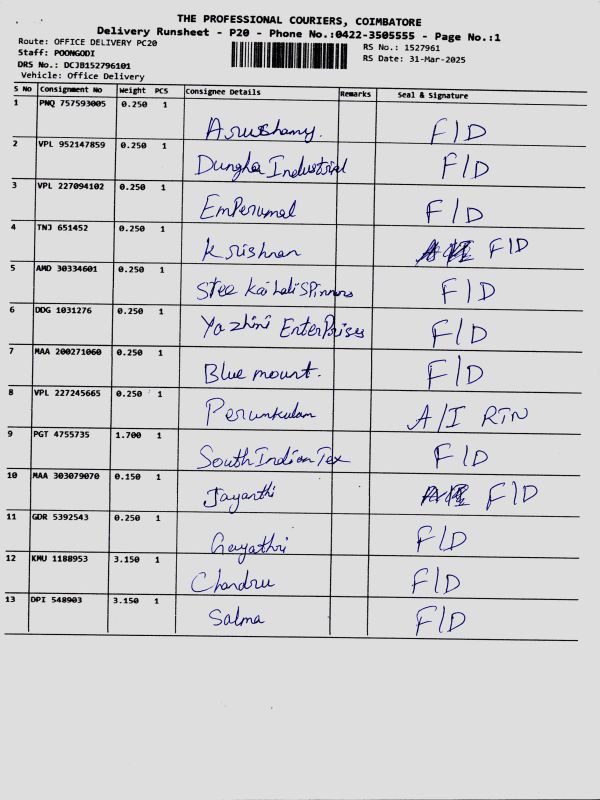 THE PROFESSIONAL COURIERS, COIMBATORE
Delivery Runsheet - P20 - Phone No.:0422-3505555 - Page No.:1
Route: OFFICE DELIVERY PC20 RS No.: 1527961
Staff: POONGODI RS Date: 31-Mar-2025
DRS No.: DCJB152796101
Vehicle: Office Delivery
S No Consignment No Weight PCS Consignee Details Remarks Seal & Signature
1 PNQ 757593005 0.250 1 F/D
2 VPL 952147859 0.250 1 Dungha Industrial F/D
3 VPL 227094102 0.250 1 EmPerumal F/D
4 TNJ 651452 0.250 1 Krishnan F/D
5 AMD 30334601 0.250 1 Stee Kailali SPinners F/D
6 DDG 1031276 0.250 1 Yazhini EnterPrises F/D
7 MAA 200271060 0.250 1 Blue mount. F/D
8 VPL 227245665 0.250 1 Perumkulam A/I RTN
9 PGT 4755735 1.700 1 South Indian Tex F/D
10 MAA 303079070 0.150 1 Jayanthi F/D
11 GDR 5392543 0.250 1 Gayathri F/D
12 KMU 1188953 3.150 1 Chandru F/D
13 DPI 548903 3.150 1 Salma F/D